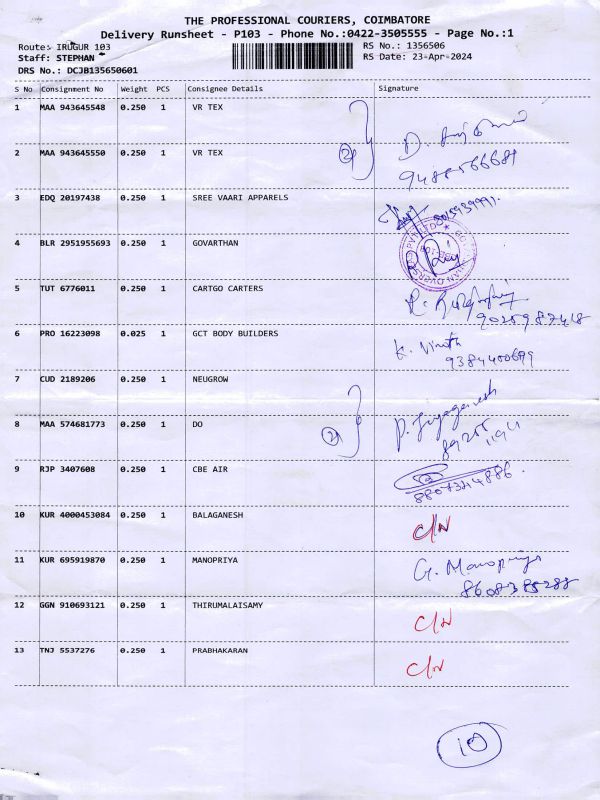 THE PROFESSIONAL COURIERS, COIMBATORE
Delivery Runsheet - P103 - Phone No.:0422-3505555 - Page No.:1
Route: IRUGUR 103
RS No.: 1356506
Staff: STEPHAN
RS Date: 23-Apr-2024
DRS No.: DCJB135650601
S No Consignment No Weight PCS Consignee Details Signature
1 MAA 943645548 0.250 1 VR TEX
2 MAA 943645550 0.250 1 VR TEX
3 EDQ 20197438 0.250 1 SREE VAARI APPARELS
4 BLR 2951955693 0.250 1 GOVARTHAN
5 TUT 6776011 0.250 1 CARTGO CARTERS
6 PRO 16223098 0.025 1 GCT BODY BUILDERS
K. Vinoth
9384400699
7 CUD 2189206 0.250 1 NEUGROW
8 MAA 574681773 0.250 1 DO
9 RJP 3407608 0.250 1 CBE AIR
10 KUR 4000453084 0.250 1 BALAGANESH C/N
11 KUR 695919870 0.250 1 MANOPRIYA G. Manopriya
8608385288
12 GGN 910693121 0.250 1 THIRUMALAISAMY C/N
13 TNJ 5537276 0.250 1 PRABHAKARAN C/N
10